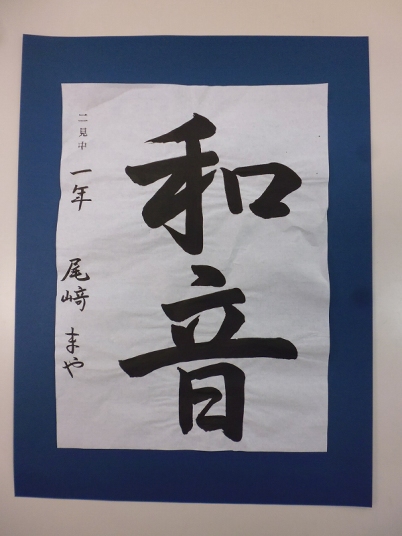 和音
二見中
一年 尾﨑 まや